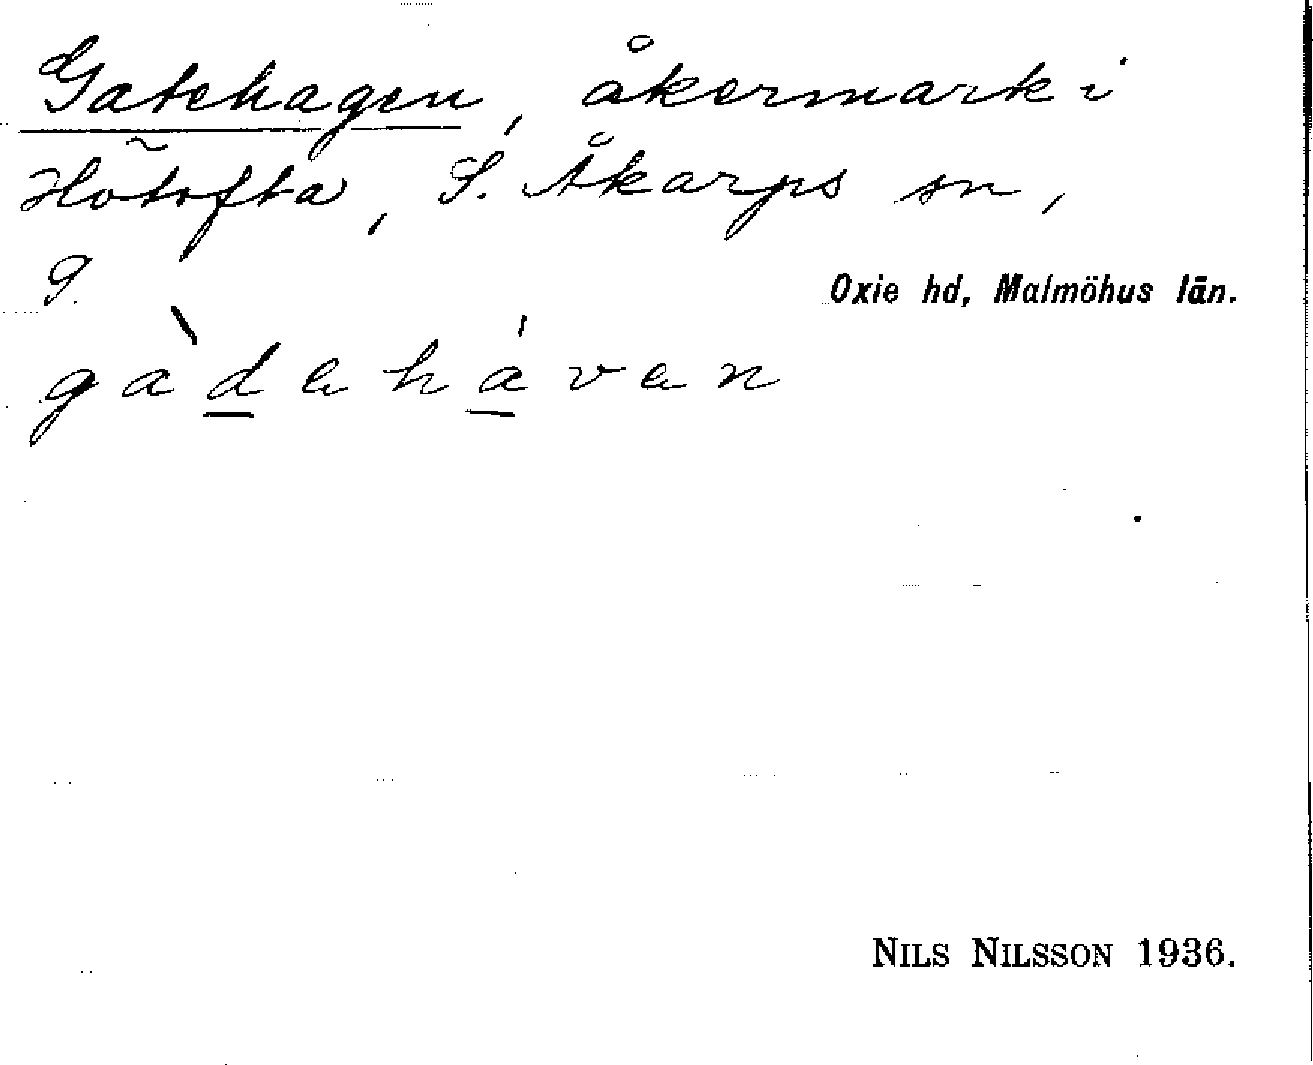 Gatehagen, åkermark i
Hötofta, S. Åkarps sn,
S.
Oxie hd, Malmöhus län.
gàdahávan
NILS NILSSON 1936.